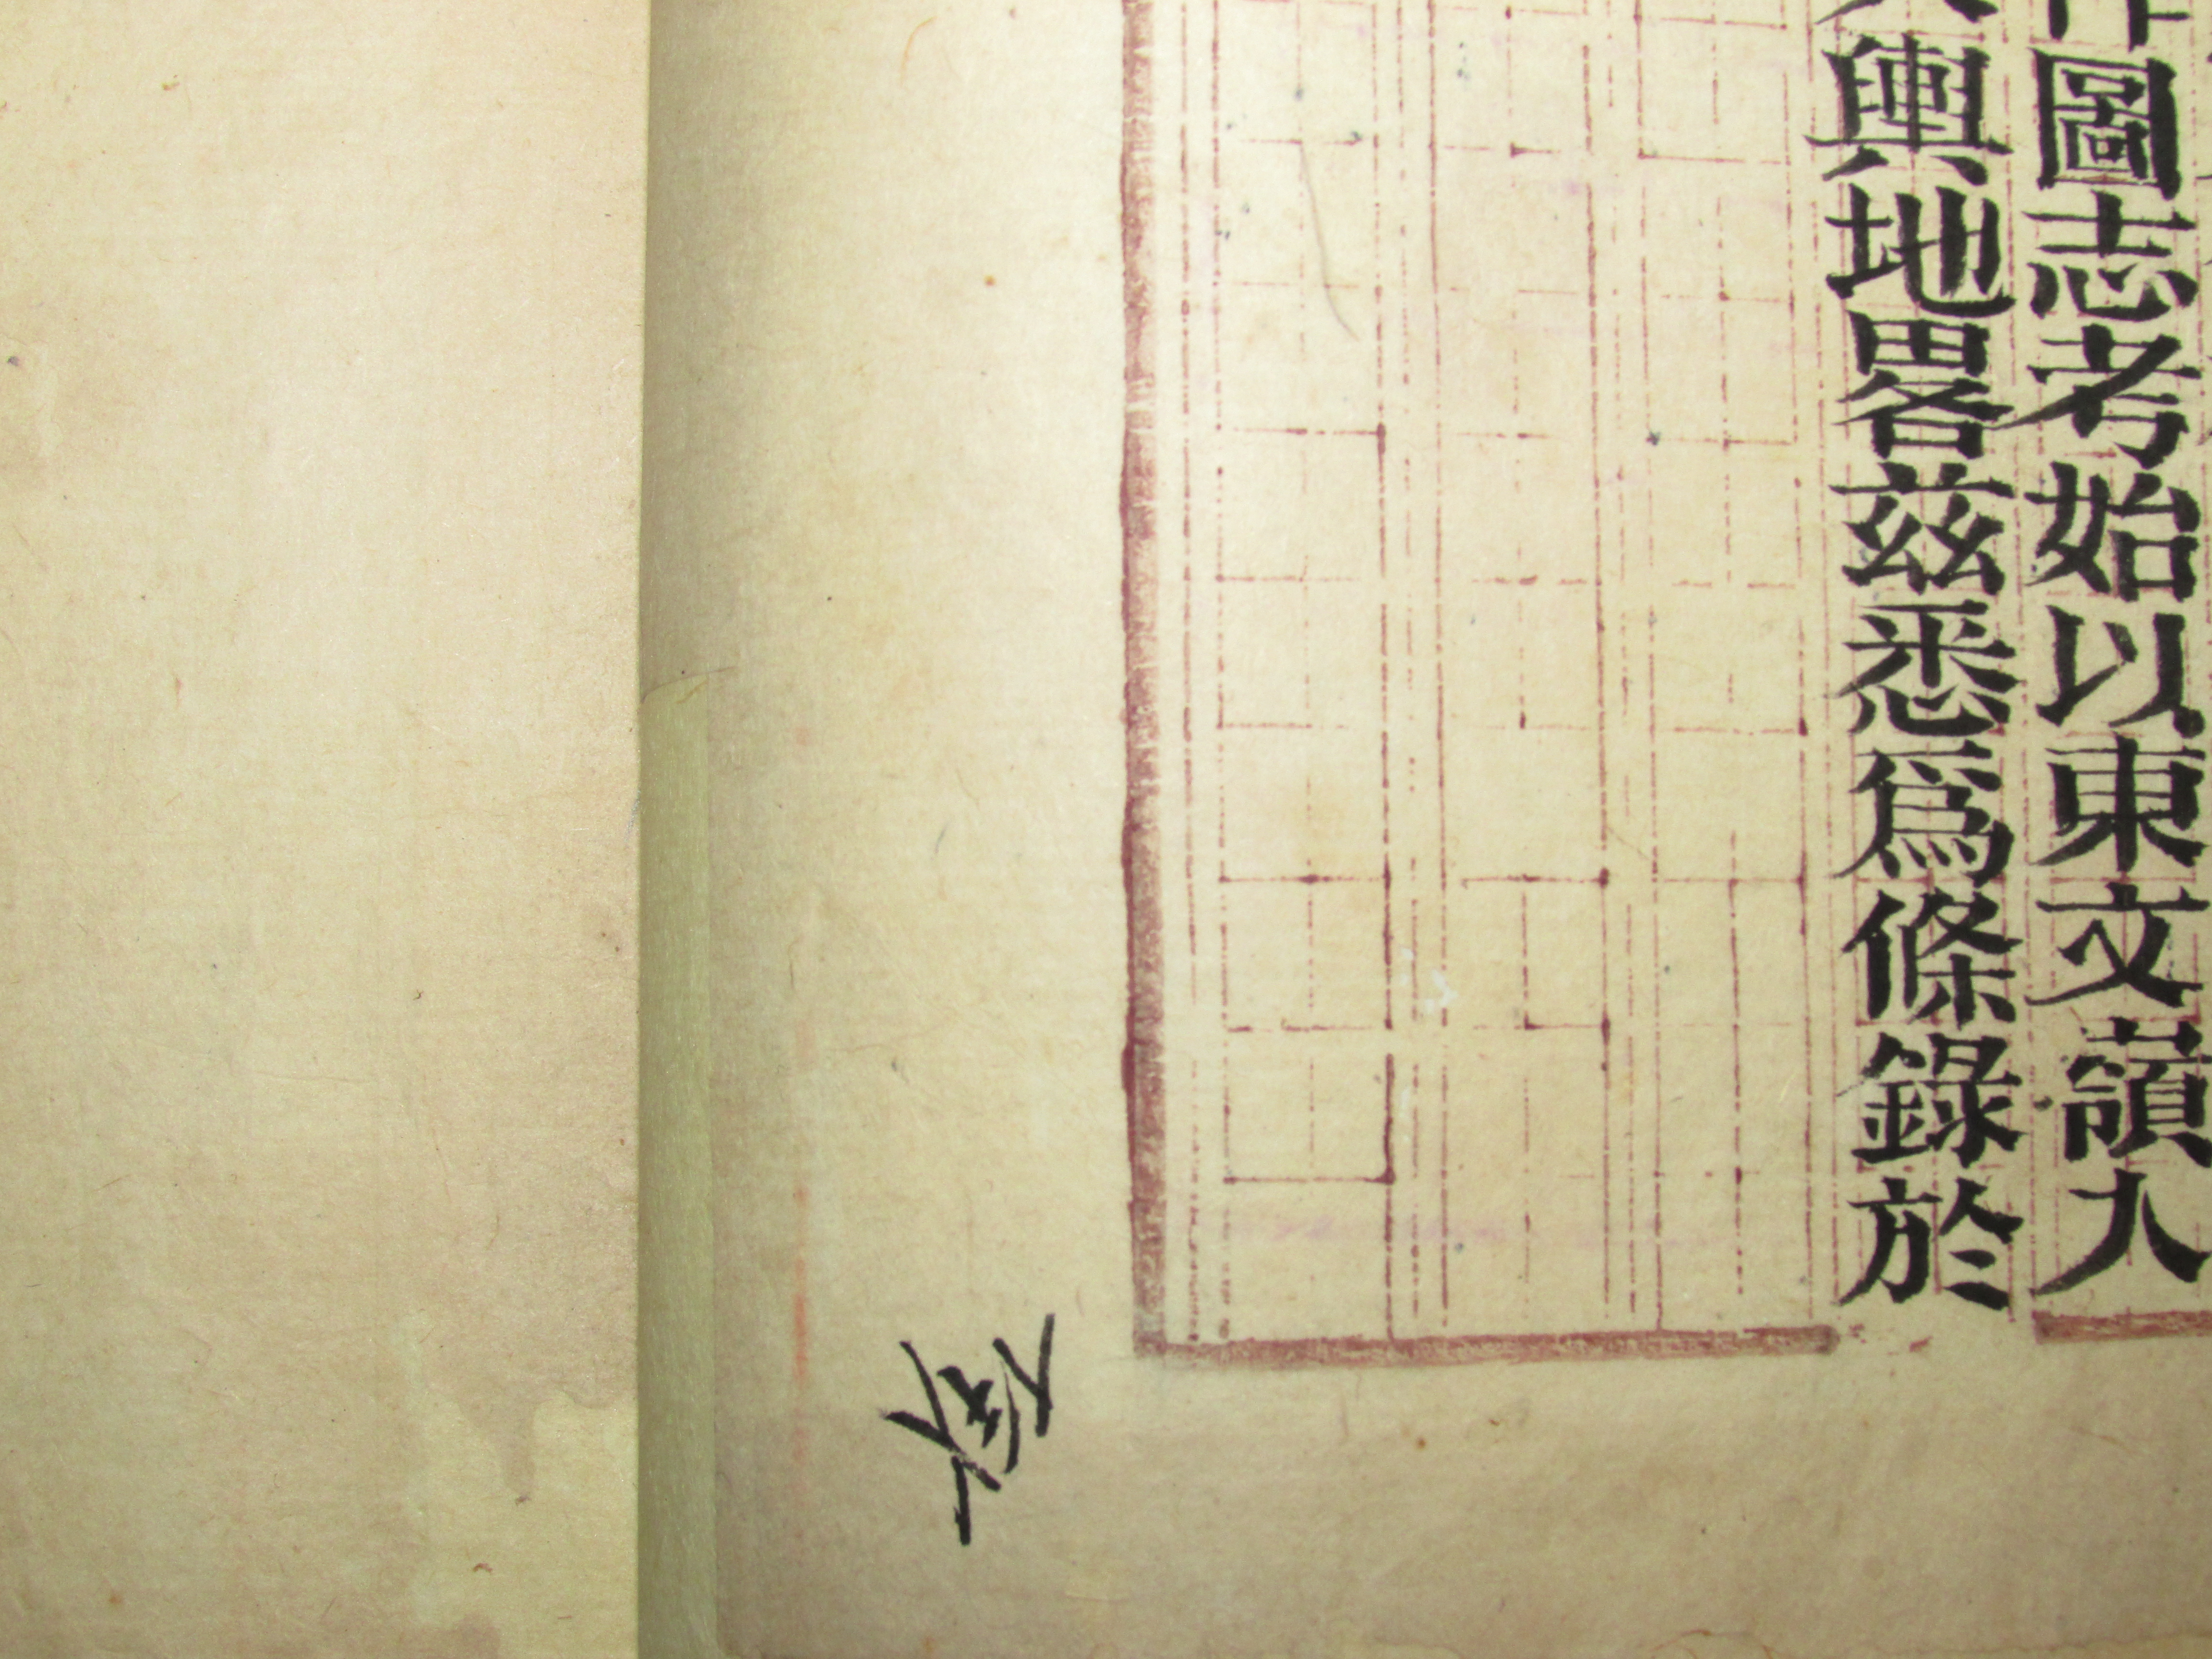 圖志考始以東文嶺人
輿地畧兹悉爲條錄於